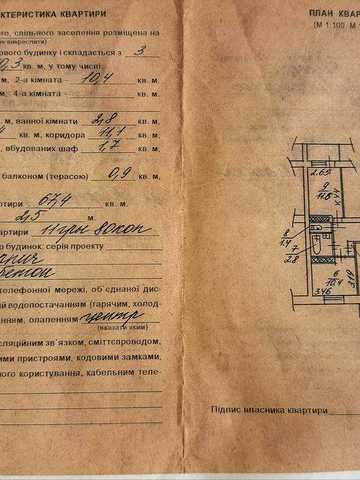 АКТЕРИСТИКА КВАРТИРИ
го, спільного заселення розміщена на
вого будинку і складається з 3
0,3 кв. м, у тому числі:
м, 2-а кімната 10,4 кв. м,
м, 4-а кімната кв. м,
м, ванної кімнати 2,8 кв. м,
кв. м, коридора 11,1 кв. м,
, вбудованих шаф 1,7 кв. м,
балконом (терасою) 0,9 кв. м
артири 67,4 кв. м,
2,5 м.
вартири 11 грн 80 коп
о будинок: серія проекту
телефонної мережі, об єднаної дис-
й водопостачанням (гарячим, холод-
анням, опаленням центр
(вказати яким)
сляційним зв'язком, сміттєпроводом,
ими пристроями, кодовими замками,
ного користування, кабельним теле-
ПЛАН КВАР
(М 1:100 М
2.65
9
11.8
8
1.4
7
2.8
6
10.4
3.46
Підпис власника квартири